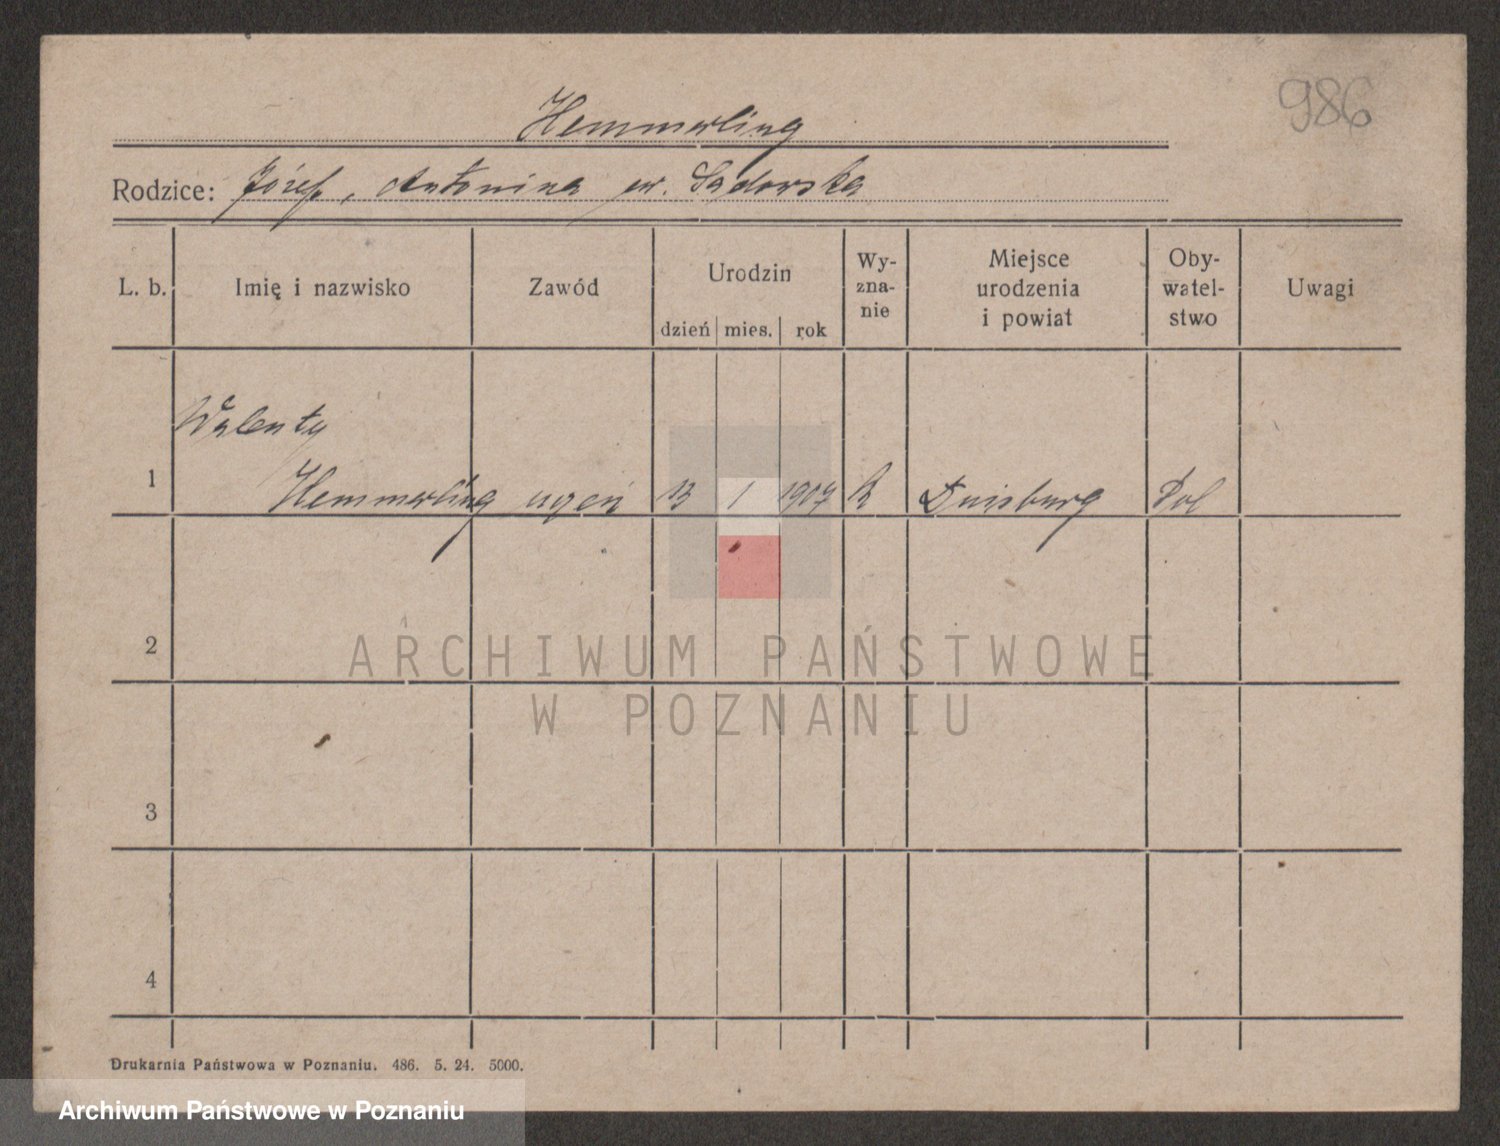 986
Hemmerling
Rodzice: Józef, Antonina ur. Sądowska
L. b. Imię i nazwisko Zawód Urodzin dzień mies. rok Wy-zna-nie Miejsce urodzenia i powiat Oby-watel-stwo Uwagi
Walenty
1 Hemmerling uczeń 13 1 1907 k Duisburg Pol
2
ARCHIWUM PAŃSTWOWE
W POZNANIU
3
4
Drukarnia Państwowa w Poznaniu. 486. 5. 24. 5000.
Archiwum Państwowe w Poznaniu